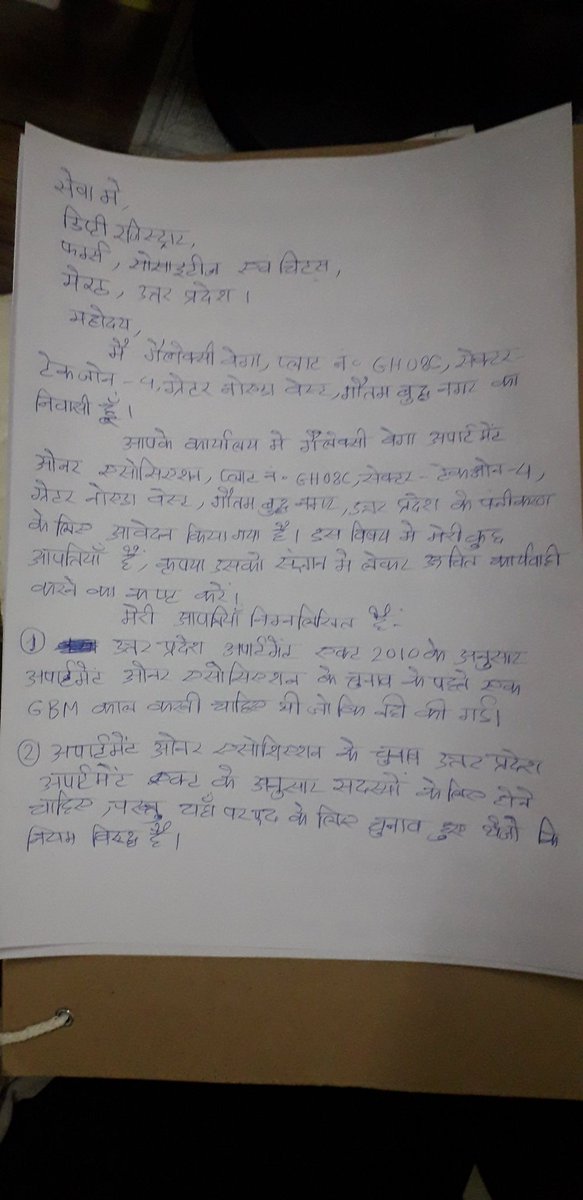 सेवा मे,
डिप्टी रजिस्ट्रार,
फर्म्स, सोसाइटीज एव चिट्स,
मेरठ, उत्तर प्रदेश ।
महोदय,
मै गैलेक्सी वेगा, प्लाट नं॰ GH08C, सेक्टर-
टेकजोन-4, ग्रेटर नोएडा वेस्ट, गौतम बुद्ध नगर का
निवासी हूँ ।
आपके कार्यालय मे गैलेक्सी वेगा अपार्टमेंट
ओनर एसोसिएशन, प्लाट नं॰ GH08C, सेक्टर-टेकजोन-4,
ग्रेटर नोएडा वेस्ट, गौतम बुद्ध नगर, उत्तर प्रदेश के पंजीकरण
के लिए आवेदन किया गया है । इस विषय मे मेरी कुछ
आपत्तियाँ हैं, कृपया इसको संज्ञान मे लेकर उचित कार्यवाही
करने का कष्ट करें ।
मेरी आपत्तियाँ निम्नलिखित हैं:
① उत्तर प्रदेश अपार्टमेंट एक्ट 2010 के अनुसार
अपार्टमेंट ओनर एसोसिएशन के चुनाव के पहले एक
GBM काल करनी चाहिए थी जो कि नही की गई ।
② अपार्टमेंट ओनर एसोशिएशन के चुनाव उत्तर प्रदेश
अपार्टमेंट एक्ट के अनुसार सदस्यों के लिए होने
चाहिए, परन्तु यहाँ पर पद के लिए चुनाव हुए थे जो कि
नियम विरुद्ध है ।